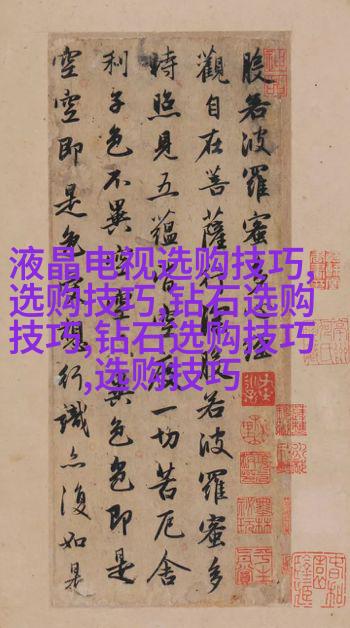 液晶电视选购技巧,
选购技巧,钻石选购
技巧,钻石选购技巧
,选购技巧
般若波羅蜜多心經
觀自在菩薩行深般若波羅蜜多
時照見五蘊皆空度一切苦厄舍
利子色不異空空不異色色即是
空空即是色受想行識亦復如是